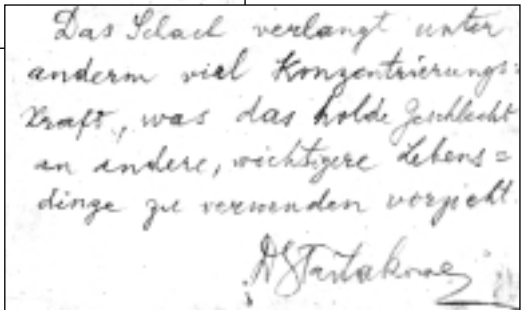 Das Schach verlangt unter
anderm viel Konzentrierungs=
kraft, was das holde Geschlecht
an andere, wichtigere Lebens=
dinge zu verwenden vorzieht.
Dr S Tartakower